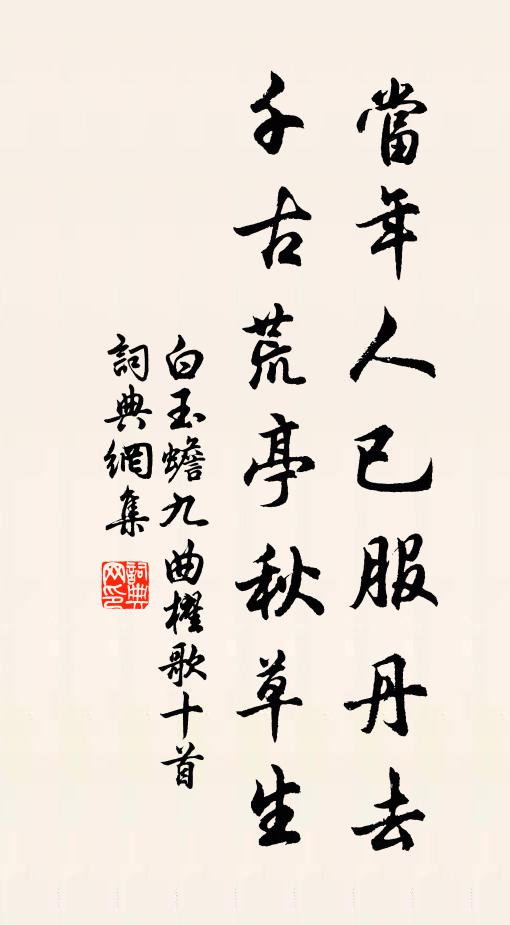 當年人已服丹去
千古荒亭秋草生
白玉蟾九曲櫂歌十首
詞典網集
詞典网印